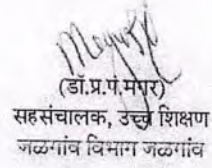 (डॉ.प्र.पं.मगर)
सहसंचालक, उच्च शिक्षण
जळगांव विभाग जळगांव